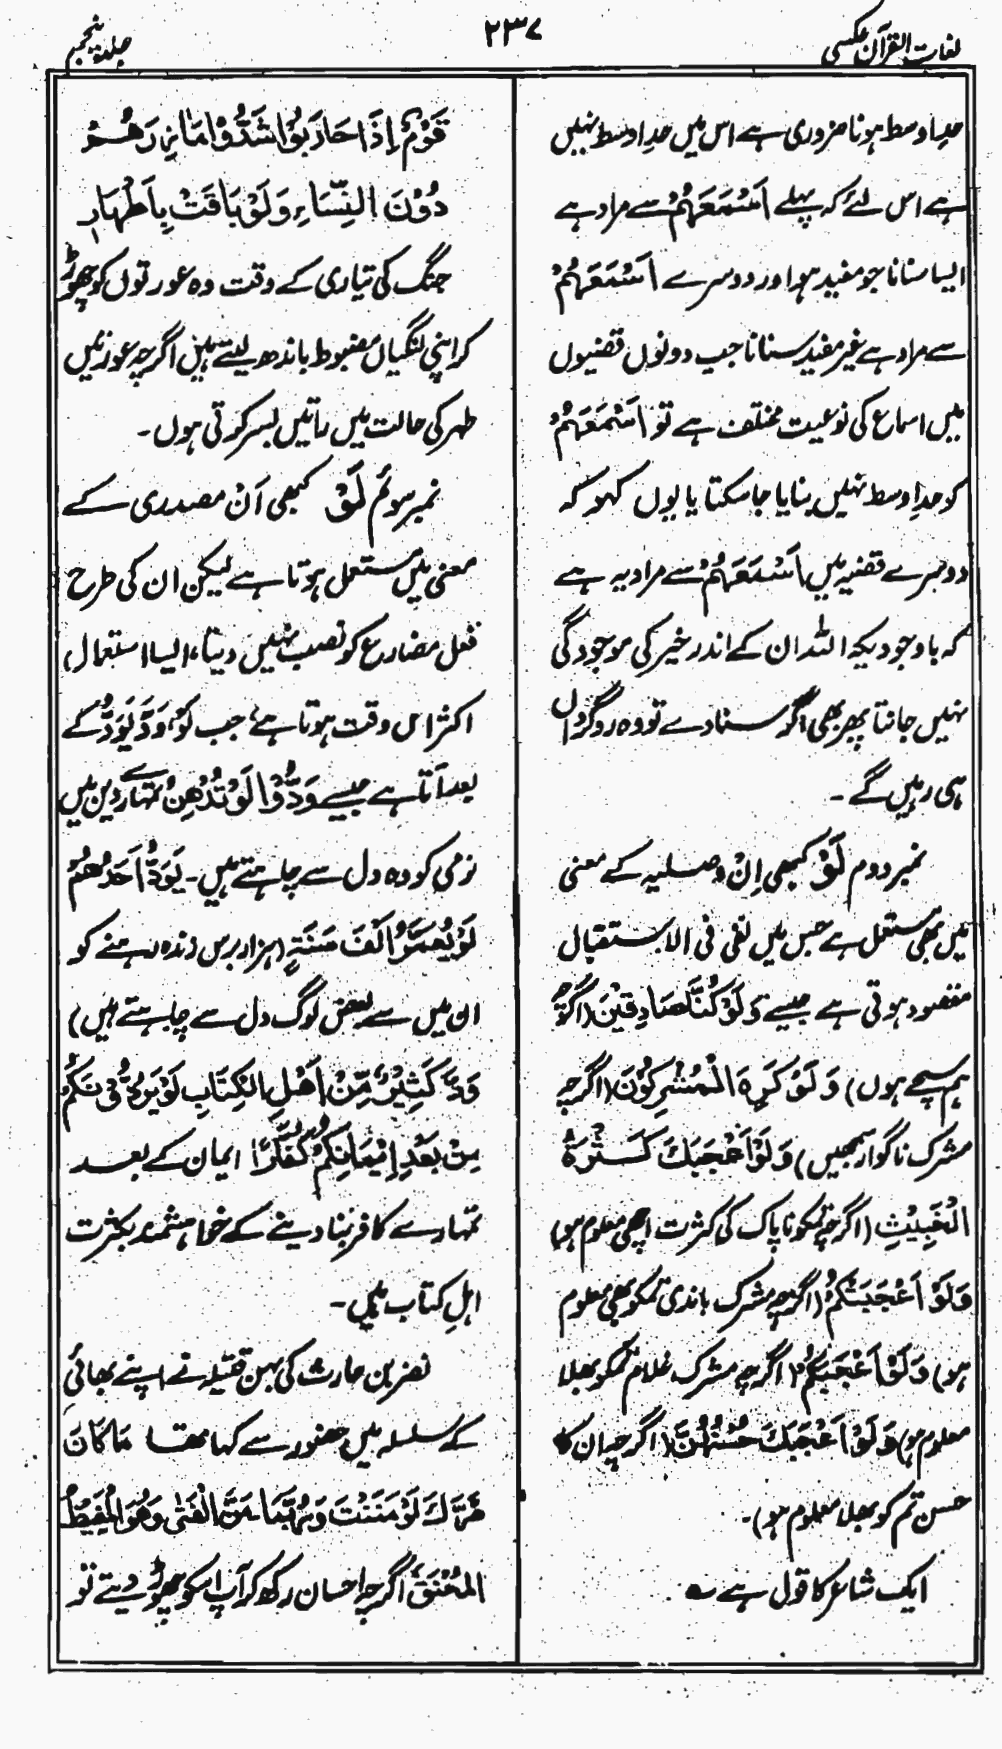 لغات القرآن عکسی
۲۳۷
جلد پنجم
حدِ اوسط ہونا ضروری ہے اس میں حدِ اوسط نہیں
ہے اس لئے کہ پہلے اَسْمَعَهُمْ سے مراد ہے
ایسا سنانا جو مفید ہو اور دوسرے اَسْمَعَهُمْ
سے مراد ہے غیر مفید سنانا جب دونوں قضیوں
میں اسماع کی نوعیت مختلف ہے تو اَسْمَعَهُمْ
کو حدِ اوسط نہیں بنایا جا سکتا یا یوں کہو کہ
دوسرے قضیہ میں اَسْمَعَهُمْ سے مراد یہ ہے
کہ باوجودیکہ اللہ ان کے اندر خیر کی موجودگی
نہیں جانتا پھر بھی اگر سنا دے تو وہ روگرداں
ہی رہیں گے ۔
نمبر دوم لَوْ کبھی اِنْ وصلیہ کے معنی
میں بھی مستعمل ہے جس میں نفی فی الاستقبال
مقصود ہوتی ہے جیسے وَلَوْ كُنَّا صَادِقِيْنَ (اگرچہ
ہم سچے ہوں) وَلَوْ كَرِهَ الْمُشْرِكُوْنَ (اگرچہ
مشرک ناگوار سمجھیں) وَلَوْ اَعْجَبَكَ كَثْرَةُ
الْخَبِيْثِ (اگرچہ تمکو ناپاک کی کثرت اچھی معلوم ہو)
وَلَوْ اَعْجَبَتْكُمْ (اگرچہ مشرک باندی تمکو بھی معلوم
ہو) وَلَوْ اَعْجَبَكُمْ (اگرچہ مشرک غلام تمکو بھلا
معلوم ہو) وَلَوْ اَعْجَبَكَ حُسْنُهُنَّ (اگرچہ ان کا
حسن تم کو بھلا معلوم ہو)۔
ایک شاعر کا قول ہے ؎
قَوْمٌ اِذَا حَارَبُوْا شَدُّوْا مَاٰزِرَهُمْ
دُوْنَ النِّسَاءِ وَلَوْ بَاتَتْ بِاَطْهَارِ
جنگ کی تیاری کے وقت وہ عورتوں کو چھوڑ
کر اپنی لنگیاں مضبوط باندھ لیتے ہیں اگرچہ عورتیں
طہر کی حالت میں راتیں بسر کرتی ہوں۔
نمبر سوئم لَوْ کبھی اَنْ مصدری کے
معنی میں مستعمل ہوتا ہے لیکن ان کی طرح
فعل مضارع کو نصب نہیں دیتا، ایسا استعمال
اکثر اس وقت ہوتا ہے جب لَوْ، وَدَّ يَوَدُّ کے
بعد آتا ہے جیسے وَدُّوْا لَوْ تُدْهِنُ تمہارے دین میں
نرمی کو وہ دل سے چاہتے ہیں۔ يَوَدُّ اَحَدُهُمْ
لَوْ يُعَمَّرُ اَلْفَ سَنَةٍ (ہزار برس زندہ رہنے کو
ان میں سے بعض لوگ دل سے چاہتے ہیں)
وَدَّ كَثِيْرٌ مِّنْ اَهْلِ الْكِتَابِ لَوْ يَرُدُّوْنَكُمْ
مِنْ بَعْدِ اِيْمَانِكُمْ كُفَّارًا ایمان کے بعد
تمہارے کافر بنا دینے کے خواہشمند بکثرت
اہلِ کتاب ہیں ۔
نضر بن حارث کی بہن قتیلہ نے اپنے بھائی
کے سلسلہ میں حضور سے کہا تھا مَا كَانَ
ضَرَّكَ لَوْ مَنَنْتَ وَرُبَّمَا مَنَّ الْفَتٰى وَهُوَ الْمَغِيْظُ
الْمُحْنَقُ اگرچہ احسان رکھ کر آپ اسکو چھوڑ دیتے تو